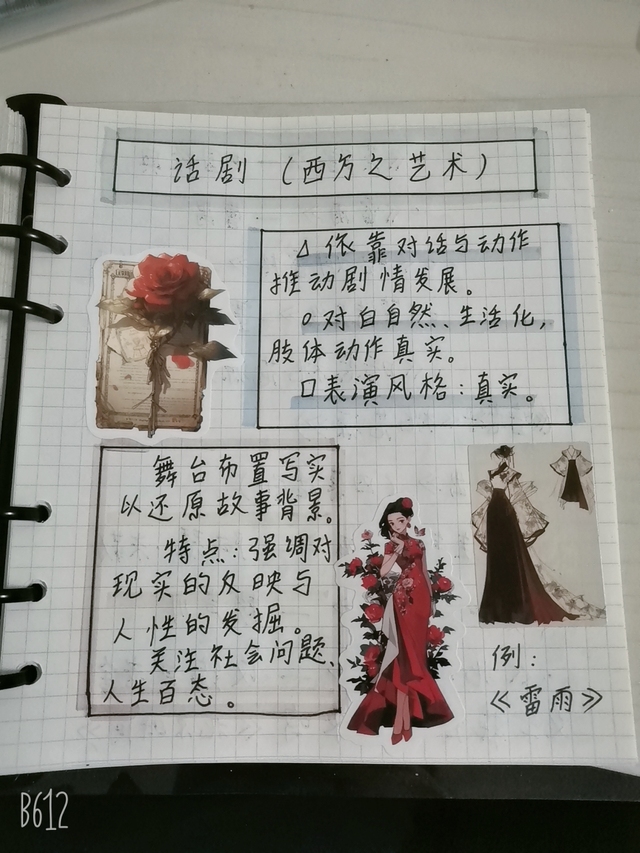 话剧（西方之艺术）
△ 依靠对话与动作
推动剧情发展。
○对白自然、生活化，
肢体动作真实。
□表演风格：真实。
舞台布置写实
以还原故事背景。
特点：强调对
现实的反映与
人性的发掘。
关注社会问题、
人生百态。
例：
《雷雨》
B612